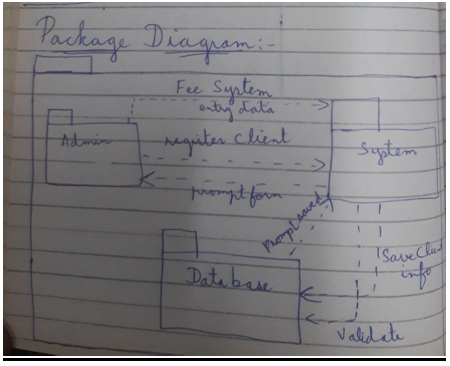 Package Diagram:-
Fee System
entry data
Admin
register Client
System
promptform
prompt saved
Save Client
info
Database
Validate